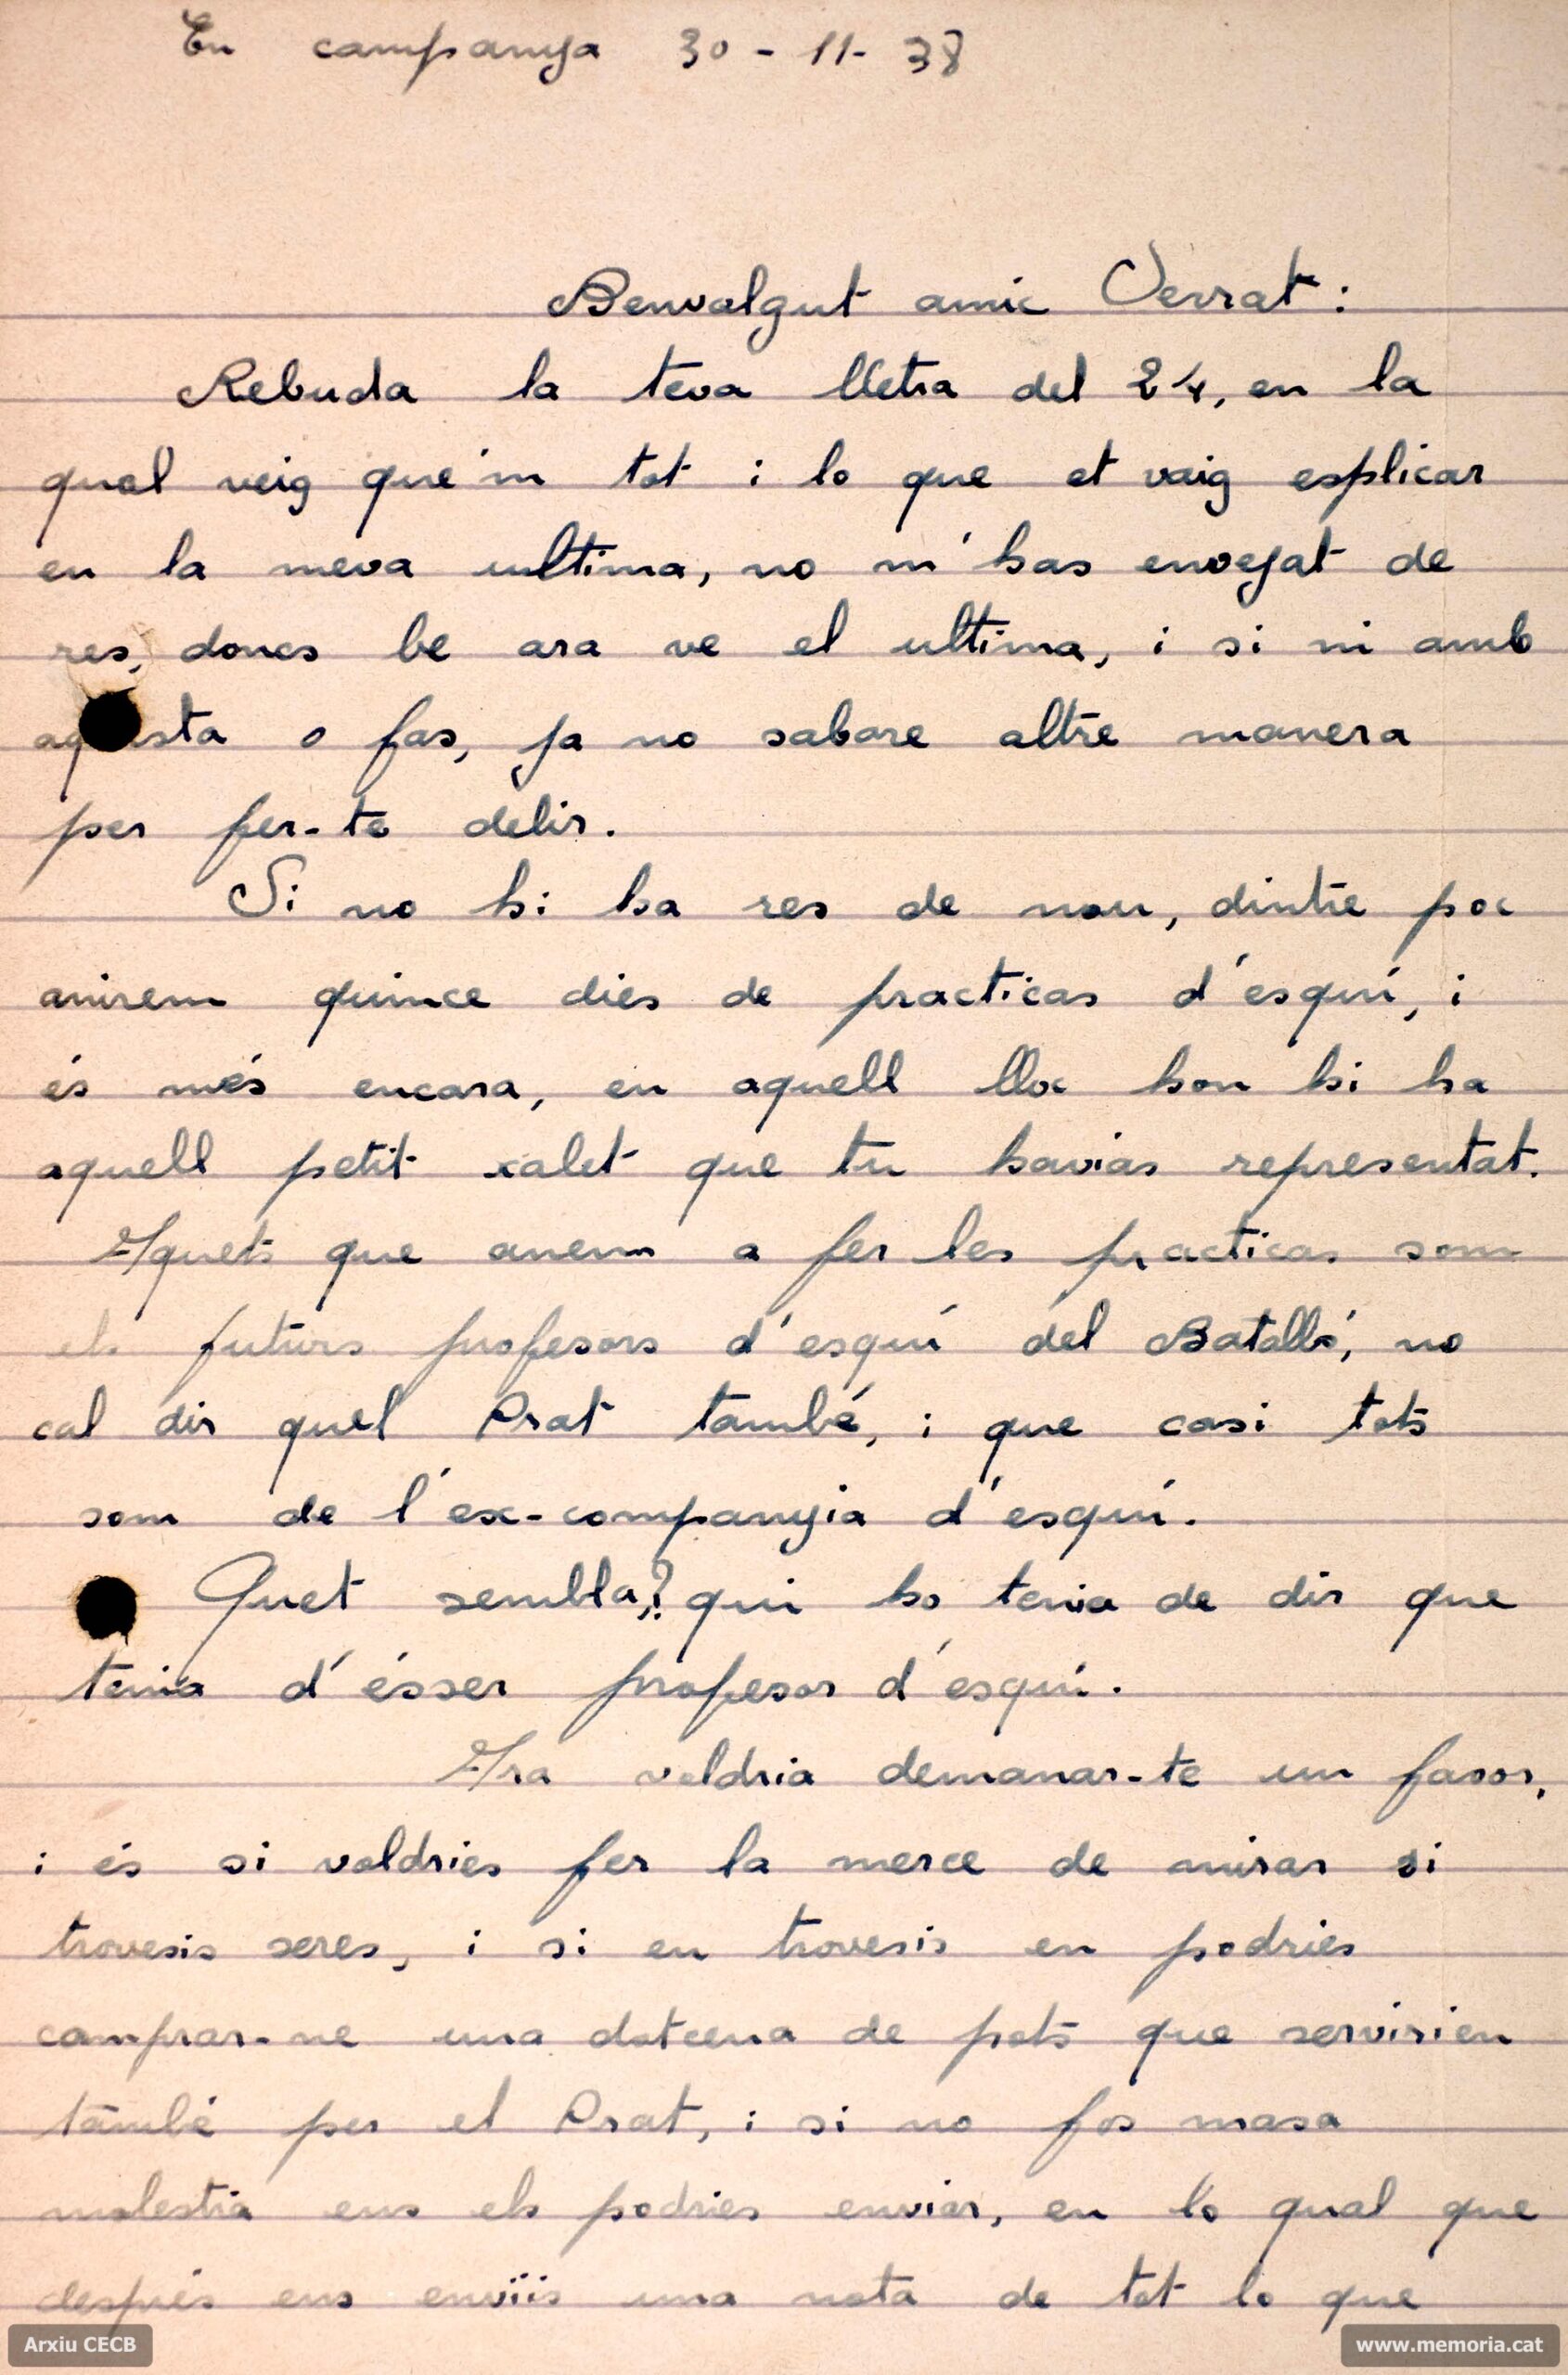 En campanya 30-11-38
Benvolgut amic Serrat:
Rebuda la teva lletra del 24, en la
qual veig que'm tot i lo que et vaig esplicar
en la meva ultima, no m'has envejat de
res, doncs be ara ve el ultima, i si ni amb
aquesta o fas, ja no sabore altre manera
per fer-te delir.
Si no hi ha res de nou, dintre poc
anirem quince dies de practicas d'esquí, i
és més encara, en aquell lloc hon hi ha
aquell petit xalet que tu havias representat.
Aquets que anem a fer les practicas som
els futurs profesors d'esquí del Batalló, no
cal dir quel Prat també, i que casi tots
som de l'ex-companyia d'esquí.
Quet sembla,? qui ho tenia de dir que
tenia d'ésser profesor d'esquí.
Ara voldria demanar-te un favor,
i és si voldries fer la merce de mirar si
trovesis seres, i si en trovesis en podries
comprar-ne una dotcena de pots que servirien
també per el Prat, i si no fos masa
molestia ens els podries enviar, en lo qual que
després ens enviïs una nota de tot lo que
Arxiu CECB
www.memoria.cat